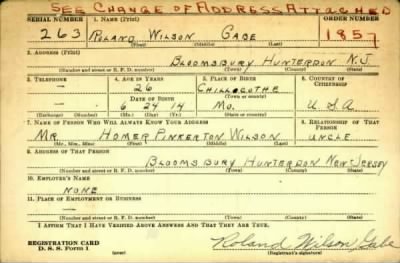 SEE CHANGE OF ADDRESS ATTACHED
SERIAL NUMBER 1. NAME (Print) ORDER NUMBER
263 ROLAND WILSON GABE 1857
(First) (Middle) (Last)
2. ADDRESS (Print)
BLOOMSBURY HUNTERDON N.J.
(Number and street or R. F. D. number) (Town) (County) (State)
3. TELEPHONE 4. AGE IN YEARS 5. PLACE OF BIRTH 6. COUNTRY OF CITIZENSHIP
— 26 CHILLOCOTHE
DATE OF BIRTH
— 6 24 14 MO. U.S.A
(Exchange) (Number) (Mo.) (Day) (Yr.) (State or country)
7. NAME OF PERSON WHO WILL ALWAYS KNOW YOUR ADDRESS 8. RELATIONSHIP OF THAT PERSON
MR HOMER PINKERTON WILSON UNCLE
(Mr., Mrs., Miss) (First) (Middle) (Last)
9. ADDRESS OF THAT PERSON
BLOOMSBURY HUNTERDON NEW JERSEY
(Number and street or R. F. D. number) (Town) (County) (State)
10. EMPLOYER'S NAME
NONE
11. PLACE OF EMPLOYMENT OR BUSINESS
—
(Number and street or R. F. D. number) (Town) (County) (State)
I AFFIRM THAT I HAVE VERIFIED ABOVE ANSWERS AND THAT THEY ARE TRUE.
REGISTRATION CARD
D. S. S. Form 1 (over) Roland Wilson Gabe
(Registrant's signature)